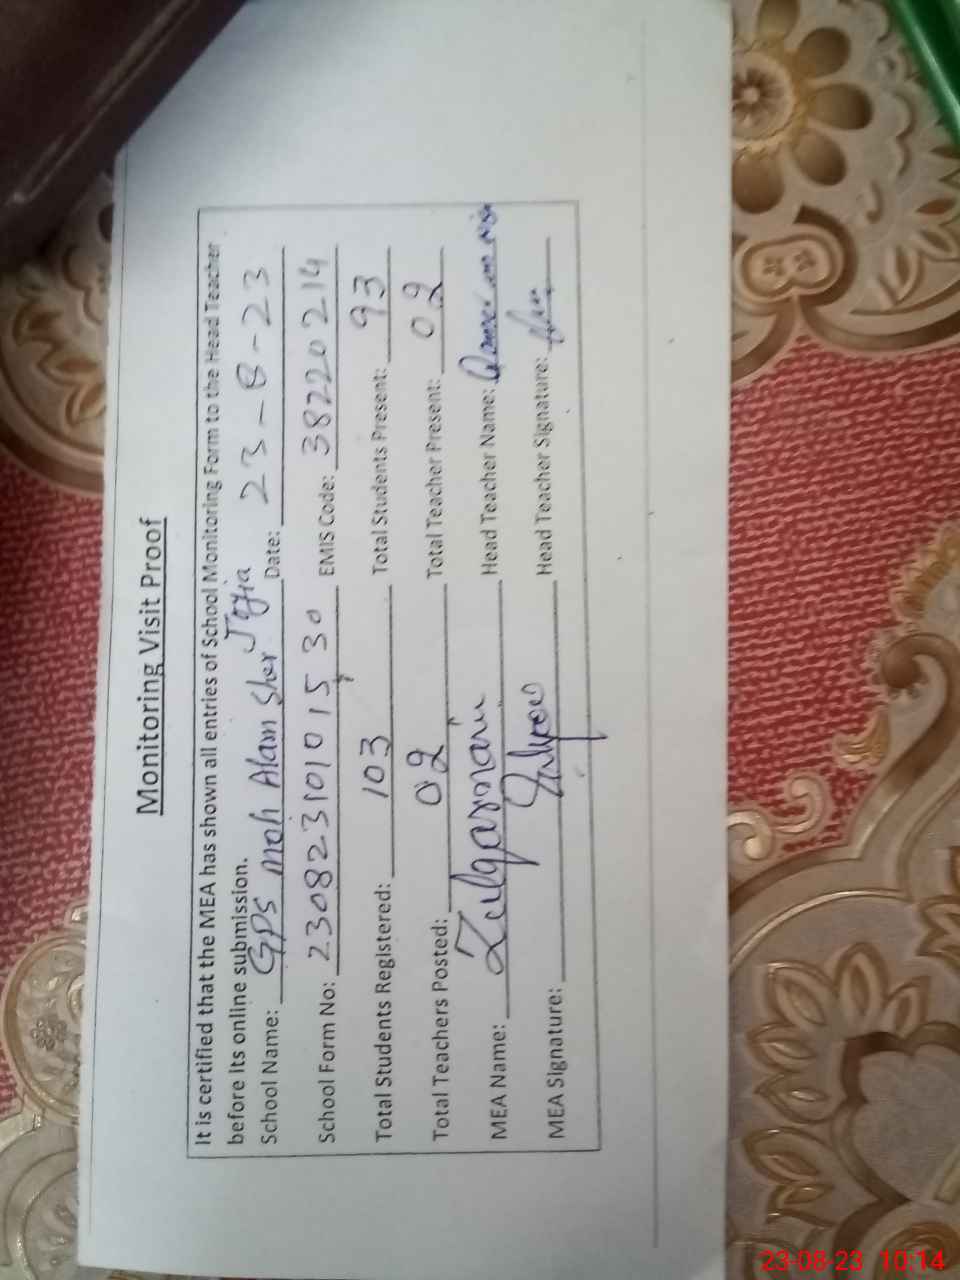 Monitoring Visit Proof
It is certified that the MEA has shown all entries of School Monitoring Form to the Head Teacher
before its online submission.
School Name: GPS Moh Alam Sher Jajja Date: 23-8-23
School Form No: 230823101015,30 EMIS Code: 38220214
Total Students Registered: 103 Total Students Present: 93
Total Teachers Posted: 02 Total Teacher Present: 02
MEA Name: Zulqarnain Head Teacher Name:
MEA Signature: Head Teacher Signature:
23-08-23 10:14